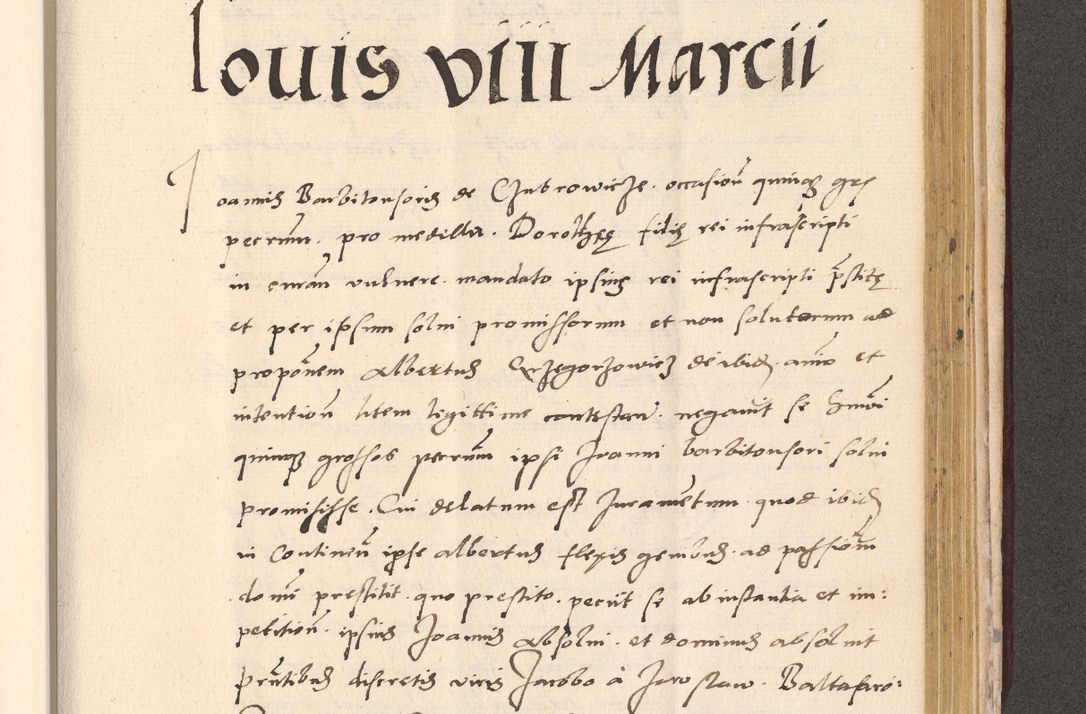 Iouis VIII Marcii
Joannis Barbitonsoris de Czubrowicze. occasioñ quinq3 grs
pecrum. pro medilla. Dorothęę filię rei infrascripti
in eman̄ vulnere mandato ipsius rei infrascripti p̄stitę
et per ipsum solui promissorum et non solutarum ad
propoñem Albertus Grzegorzowicz de ibid. aīo et
intentioñ litem legittime contestañ. negauit se hm̄oi
quinq3 grossos pecrum ipsi Joanni barbitonsori solui
promisisse. Cui delatum est Juramentum quod ibid
in Continen̄ ipse albertus flexis genibus ad passionem
domī prestitit. quo prestito. peciit se ab instantia et im:
petitioñ. ipsius Joannis absolui. et dominus absoluit
pn̄tibus discretis viris Jacobo à Jarosław. Baltasaro: